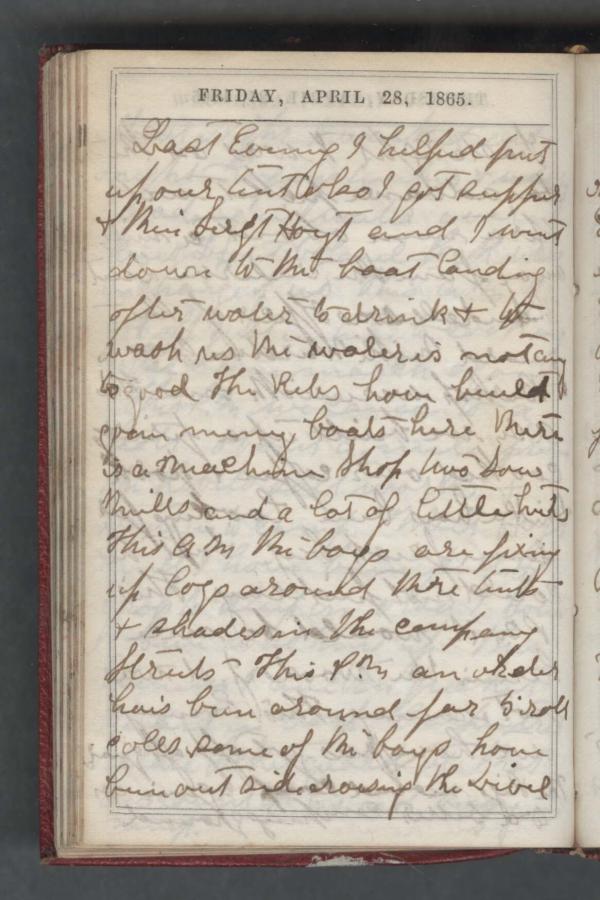 FRIDAY, APRIL 28, 1865.
Last Evening I helped put
up our tent also I got supper
& then Sergt Hoyt and I went
down to the boat landing
after water to drink & to
wash us the water is not any
to good The Rebs have build
quin meny boats here there
is a Machine Shop two Saw
Mills and a lot of little huts
This A M the boys are fixing
up logs around there tents
& shades in the company
Streets This P.M an order
hais been around for 5 roll
colls some of the boys have
been out side raising the Divel